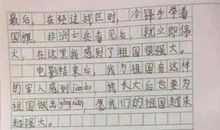 最后，在经过战区时，冷锋手举着
国旗，非洲士兵看见后，就立即停
火，在这里我感到了祖国很强大。
电影结束后，我为祖国有这样
的军人感到jiāoào，我长大后也要为
祖国做出gòngxiàn，愿我们的祖国越来
越强大。